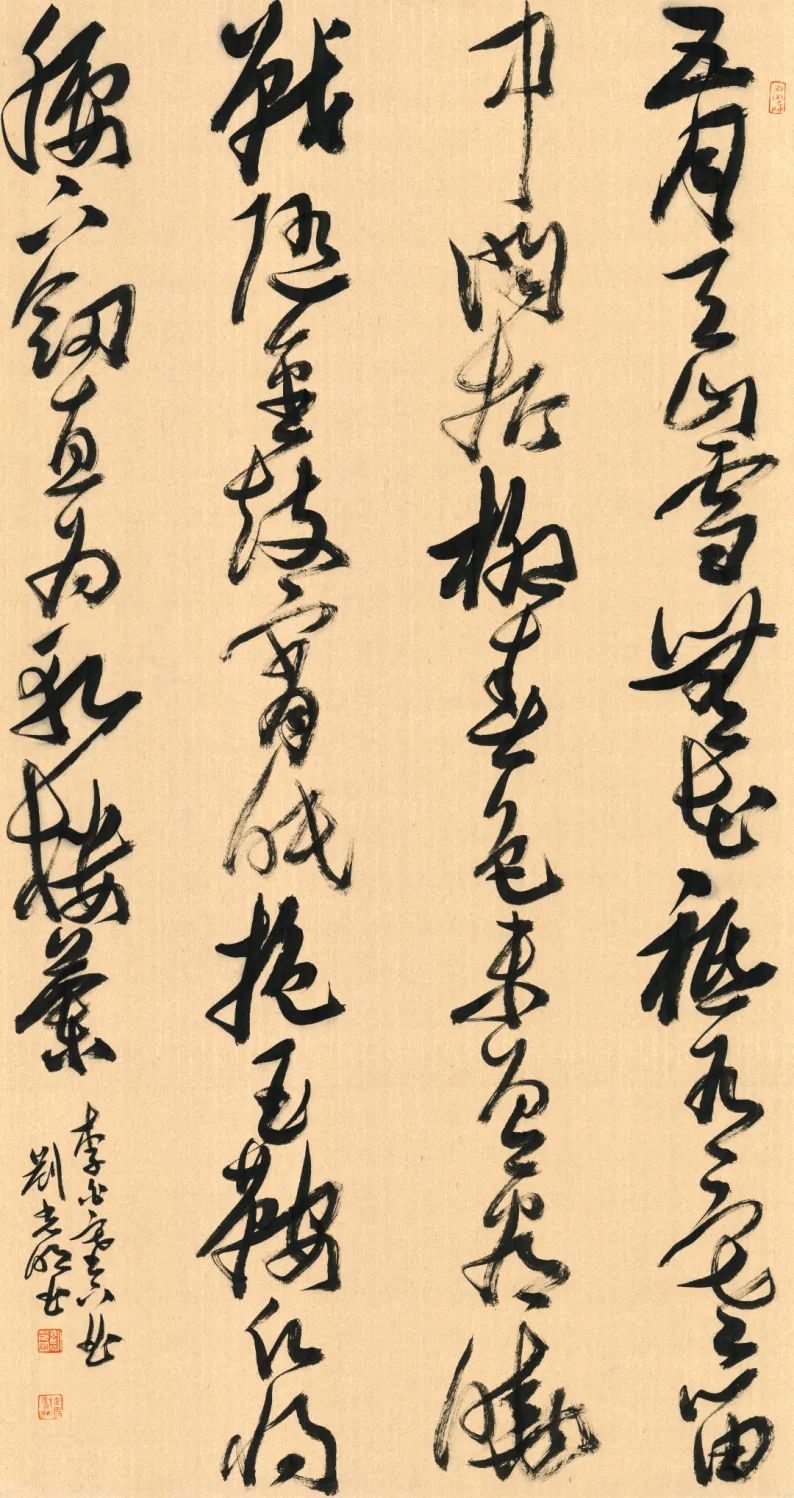 五月天山雪無花祗有寒笛
中聞折柳春色未曾看曉
戰隨金鼓宵眠抱玉鞍願將
腰下劍直為斬樓蘭
李白塞下曲
劉光明书